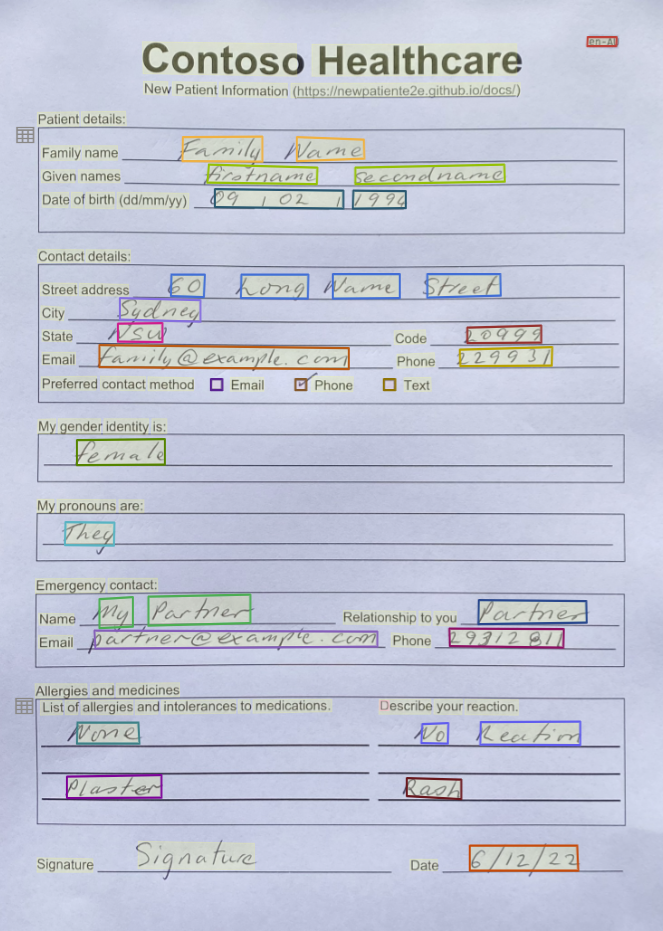 en-AU
Contoso Healthcare
New Patient Information (https://newpatiente2e.github.io/docs/)
Patient details:
Family name Family Name
Given names firstname secondname
Date of birth (dd/mm/yy) 09 / 02 / 1994
Contact details:
Street address 60 Long Name Street
City Sydney
State NSW Code 20999
Email family@example.com Phone 229931
Preferred contact method Email Phone Text
My gender identity is:
female
My pronouns are:
They
Emergency contact:
Name My Partner Relationship to you Partner
Email partner@example.com Phone 29312811
Allergies and medicines
List of allergies and intolerances to medications. Describe your reaction.
None No Reation
Plaster Rash
Signature Signature Date 6/12/22